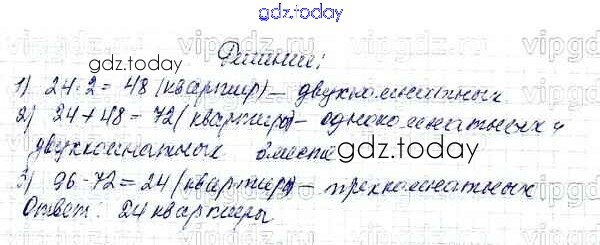 gdz.today
Решение:
gdz.today
1) 24·2 = 48 (квартир) – двухкомнатных
2) 24 + 48 = 72 (квартиры) – однокомнатных и
двухкомнатных вместе
gdz.today
3) 96 - 72 = 24 (квартиры) – трехкомнатных
Ответ: 24 квартиры
gdz.today